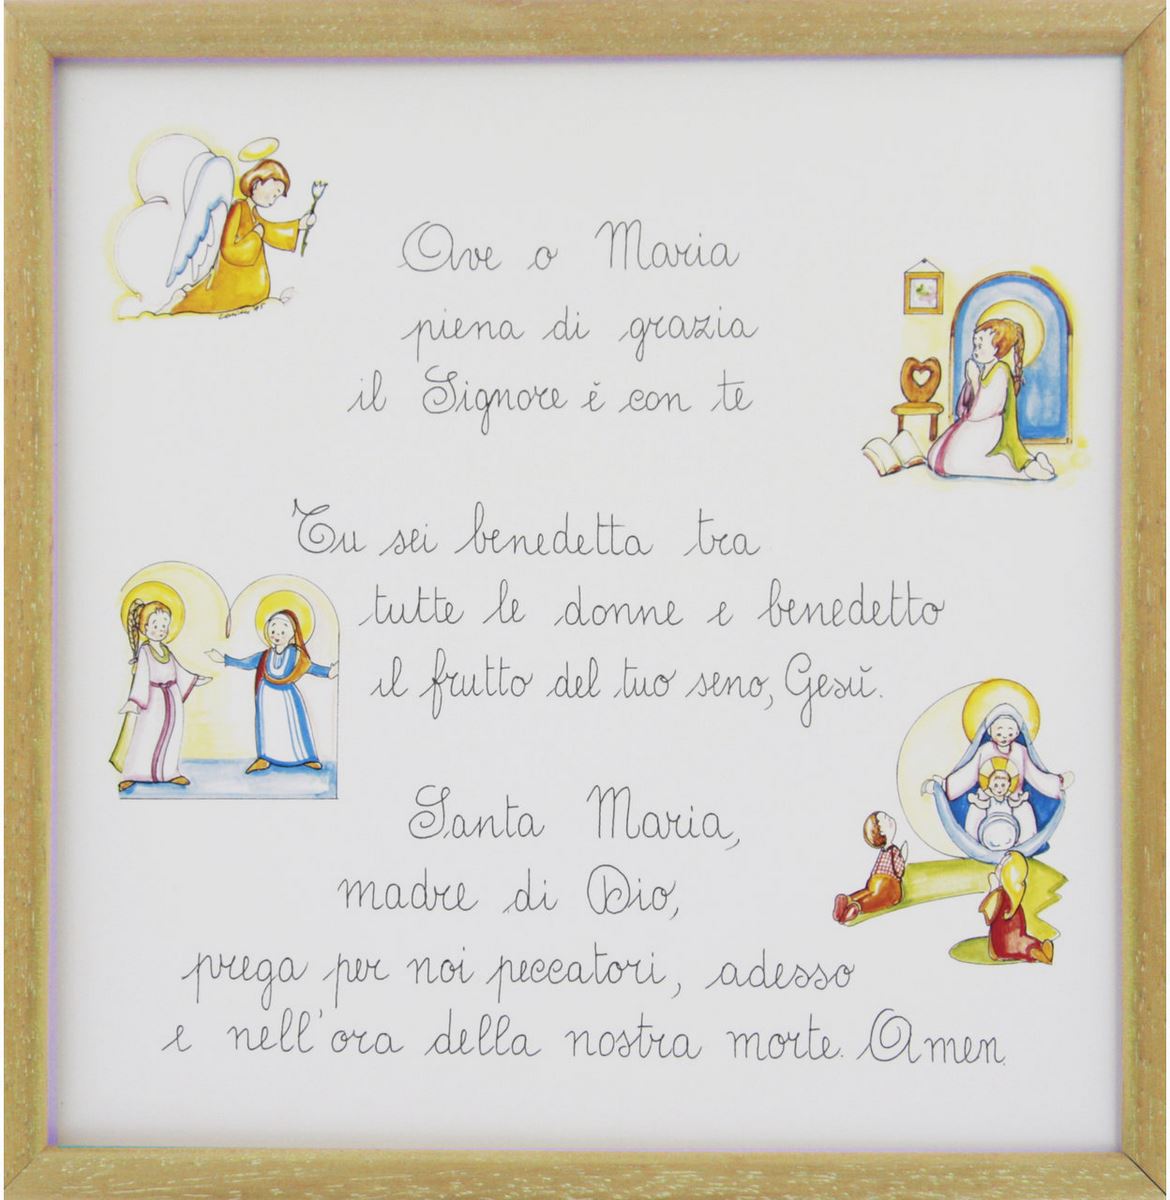 Ave o Maria
piena di grazia
il Signore è con te
Tu sei benedetta tra
tutte le donne e benedetto
il frutto del tuo seno, Gesù.
Santa Maria,
madre di Dio,
prega per noi peccatori, adesso
e nell'ora della nostra morte. Amen.